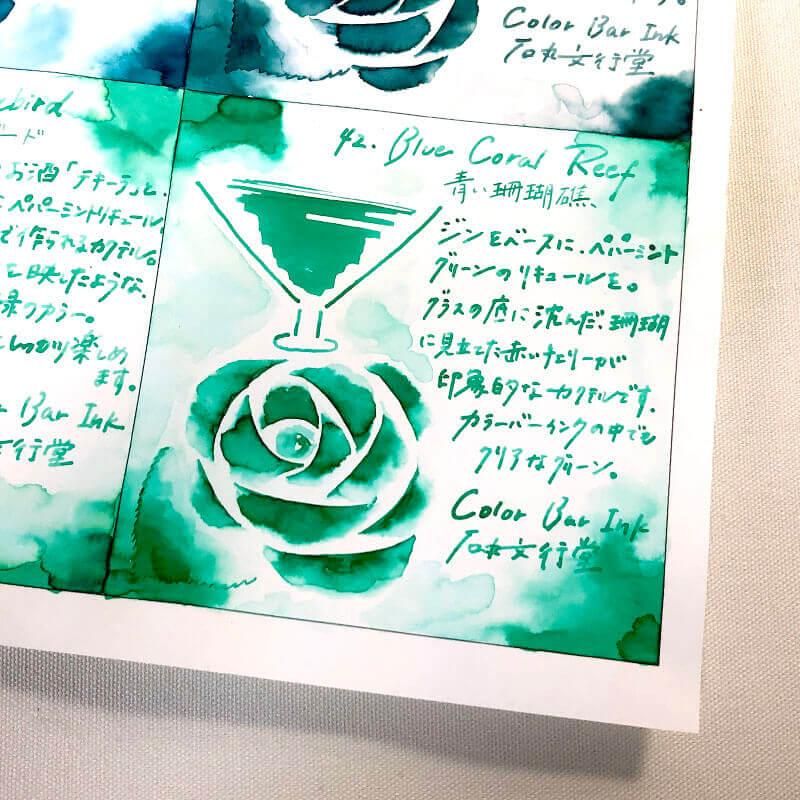 Color Bar Ink
石丸文行堂
ebird
ード
お酒「テキーラ」と、
ペパーミントリキュール
で作られるカクテル。
を映したような、
緑のカラー。
しっかり楽しめ
ます。
r Bar Ink
文行堂
42. Blue Coral Reef
青い珊瑚礁、
ジンをベースに、ペパーミント
グリーンのリキュールを。
グラスの底に沈んだ、珊瑚
に見立てた赤いチェリーが
印象的なカクテルです。
カラーバーインクの中でも
クリアなグリーン。
Color Bar Ink
石丸文行堂